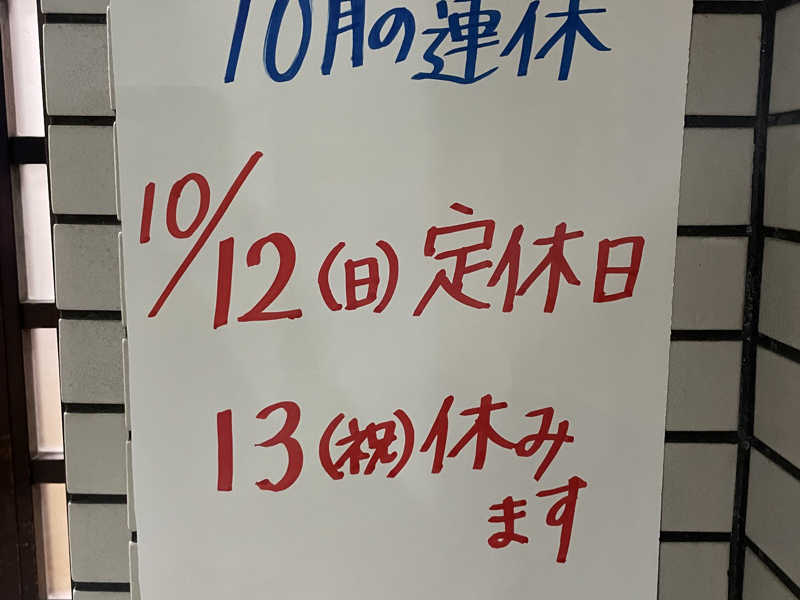 10月の連休
10/12(日)定休日
13(祝)休み
ます